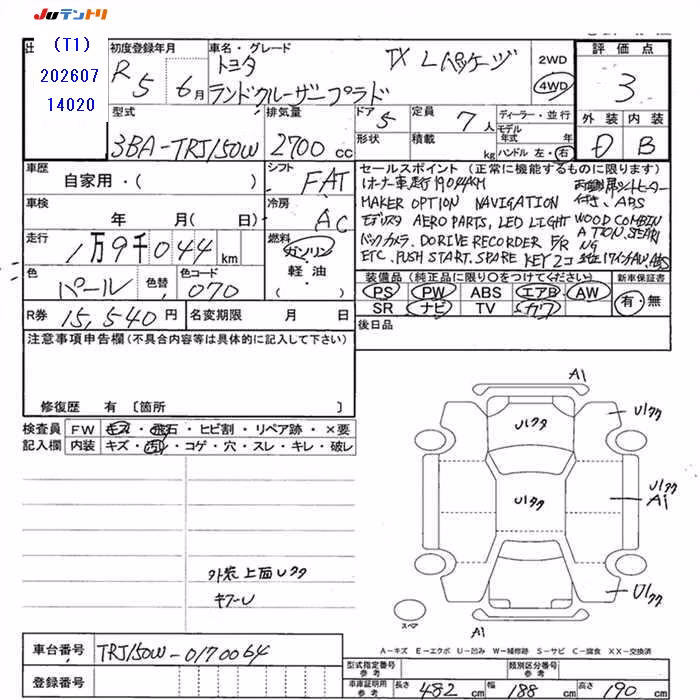 JUテントリ
(T1)
202607
14020
初度登録年月
R 5 年 6月
車名・グレード
トヨタ TX Lパッケージ
ランドクルーザープラド
2WD
4WD
評価点
3
外装 内装
D B
型式
3BA-TRJ150W
排気量
2700 cc
ドア
5
定員
7 人
形状
積載
kg
ディーラー・並行
モデル年式 年
ハンドル 左・右
車歴
自家用・( )
シフト
FAT
車検
年 月( 日)
冷房
AC
走行
1万9千044 km
燃料
ガソリン
軽油・
( )
色
パール
色替
色コード
070
R券 15,540 円
名変期限 月 日
セールスポイント (正常に機能するものに限ります)
1オーナー車走行19044KM
MAKER OPTION NAVIGATION
モデリスタ AERO PARTS, LED LIGHT WOOD COMBIN
バックカメラ. DORIVE RECORDER F/R
ETC. PUSH START. SPARE KEY 2コ
装備品 (純正品に限り○をつけてください)
新車保証書
PS PW ABS エアB AW
SR ナビ TV カワ
有・無
後日品
注意事項申告欄 (不具合内容等は具体的に記入して下さい)
修復歴 有 〔箇所 〕
検査員 FW キズ・飛石・ヒビ割・リペア跡・×要
記入欄 内装 キズ・汚れ・コゲ・穴・スレ・キレ・破レ
A1
U1クク
U1クク
U1クク
U1クク
A1
U1クク
外装上面Uクク
キズーU
スペア
A1
A-キズ E-エクボ U-凹み W-補修跡 S-サビ C-腐食 XX-交換済
車台番号 TRJ150W-0170064
登録番号
型式指定番号 参考
類別区分番号 参考
車庫証明用 参考 長さ 482 cm 幅 188 cm 高さ 190 cm